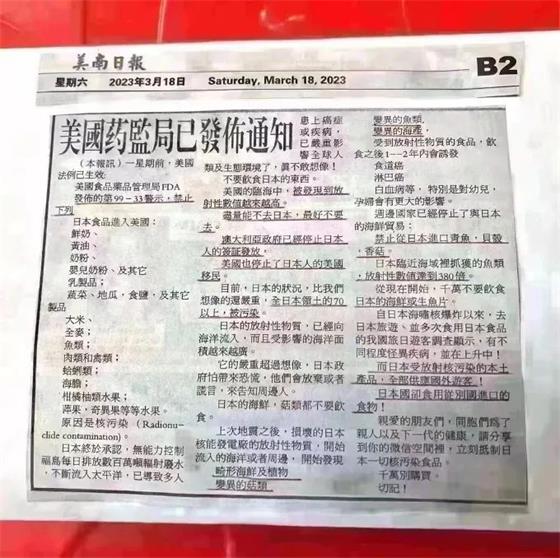 美南日報
星期六 2023年3月18日 Saturday, March 18, 2023 B2
美國药監局已發佈通知
（本報訊）一星期前，美國
法例已生效:
美國食品藥品管理局FDA
發佈的第99－33警示，禁止
下列
日本食品進入美國：
鮮奶、
黃油、
奶粉、
嬰兒奶粉、及其它
乳製品；
蔬菜、地瓜，食鹽，及其它
製品
大米、
全麥；
魚類；
肉類和禽類；
蛤蜊類；
海膽；
柑橘柚類水果；
蘋果，奇異果等等水果。
原因是核污染（Radionu-
clide contamination)。
日本終於承認，無能力控制
福島每日排放數百萬噸輻射廢水
，不斷流入太平洋，已導致多人
患上癌症
或疾病，
已嚴重影
響全球人
類及生態環境了，真不敢想像！
不要飲食日本的東西。
美國的臨海中，被發現到放
射性數值越來越高。
盡量能不去日本，最好不要
去。
澳大利亞政府已經停止日本
人的簽証發放，
美國也停止了日本人的美國
移民。
目前，日本的狀況，比我們
想像的還嚴重，全日本領土的70
以上，被污染。
日本的放射性物質，已經向
海洋流入，而且受影響的海洋面
積越來越廣。
它的嚴重超過想像，日本政
府怕帶來恐慌，他們會放棄或者
謊言，來告知周邊人。
日本的海鮮，菇類都不要飲
食。
上次地震之後，損壞的日本
核能發電廠的放射性物質，開始
流入的海洋或者周邊，開始發現
畸形海鮮及植物
變異的菇類
變異的魚類，
變異的海產，
受到放射性物質的食品，飲
食之後1－－2年内會誘發
食道癌
淋巴癌
白血癌等，特別是對幼兒，
孕婦會有更大的影響。
週邊國家已經停止了與日本
的海鮮貿易；
禁止從日本進口青魚，貝殼
，香菇。
日本臨近海域裡抓獲的魚類
，放射性數值達到380倍。
從現在開始，千萬不要飲食
日本的海鮮或生魚片。
自日本海嘯核爆炸以來，去
日本旅遊、並多次食用日本食品
的我國旅日遊客調查顯示，有不
同程度怪異疾病，並在上升中！
而日本受放射核污染的本土
產品，全部供應國外遊客！
日本國卻食用從別國進口的
食物！
親愛的朋友們，同胞們為了
親人以及下一代的健康，請分享
到你的微信空間裡，立刻抵制日
本一切核污染食品。
千萬別購買。
切記！